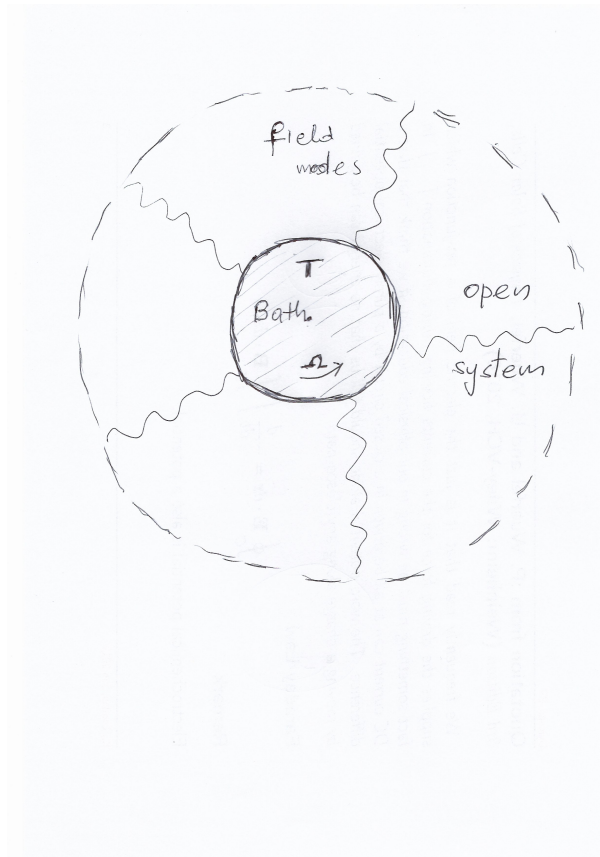 field
modes
T
Bath.
Ω
open
system